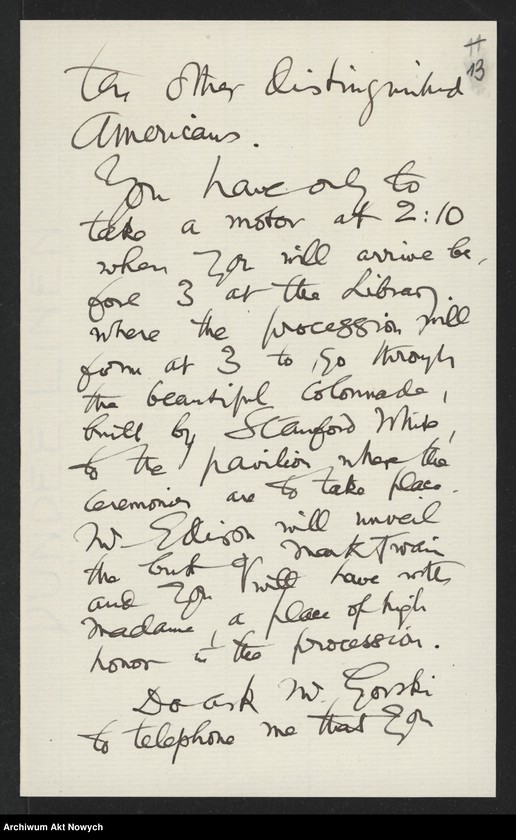 # 13
ten other distinguished
Americans.
You have only to
take a motor at 2:10
when you will arrive be-
fore 3 at the Library
where the procession will
form at 3 to go through
the beautiful colonnade,
built by Stanford White,
to the pavilion where the
ceremonies are to take place.
Mr Edison will unveil
the bust of Mark Twain
and you will have with
Madame, a place of high
honor in the procession.
Do ask Mr. Gorski
to telephone me that you
Archiwum Akt Nowych